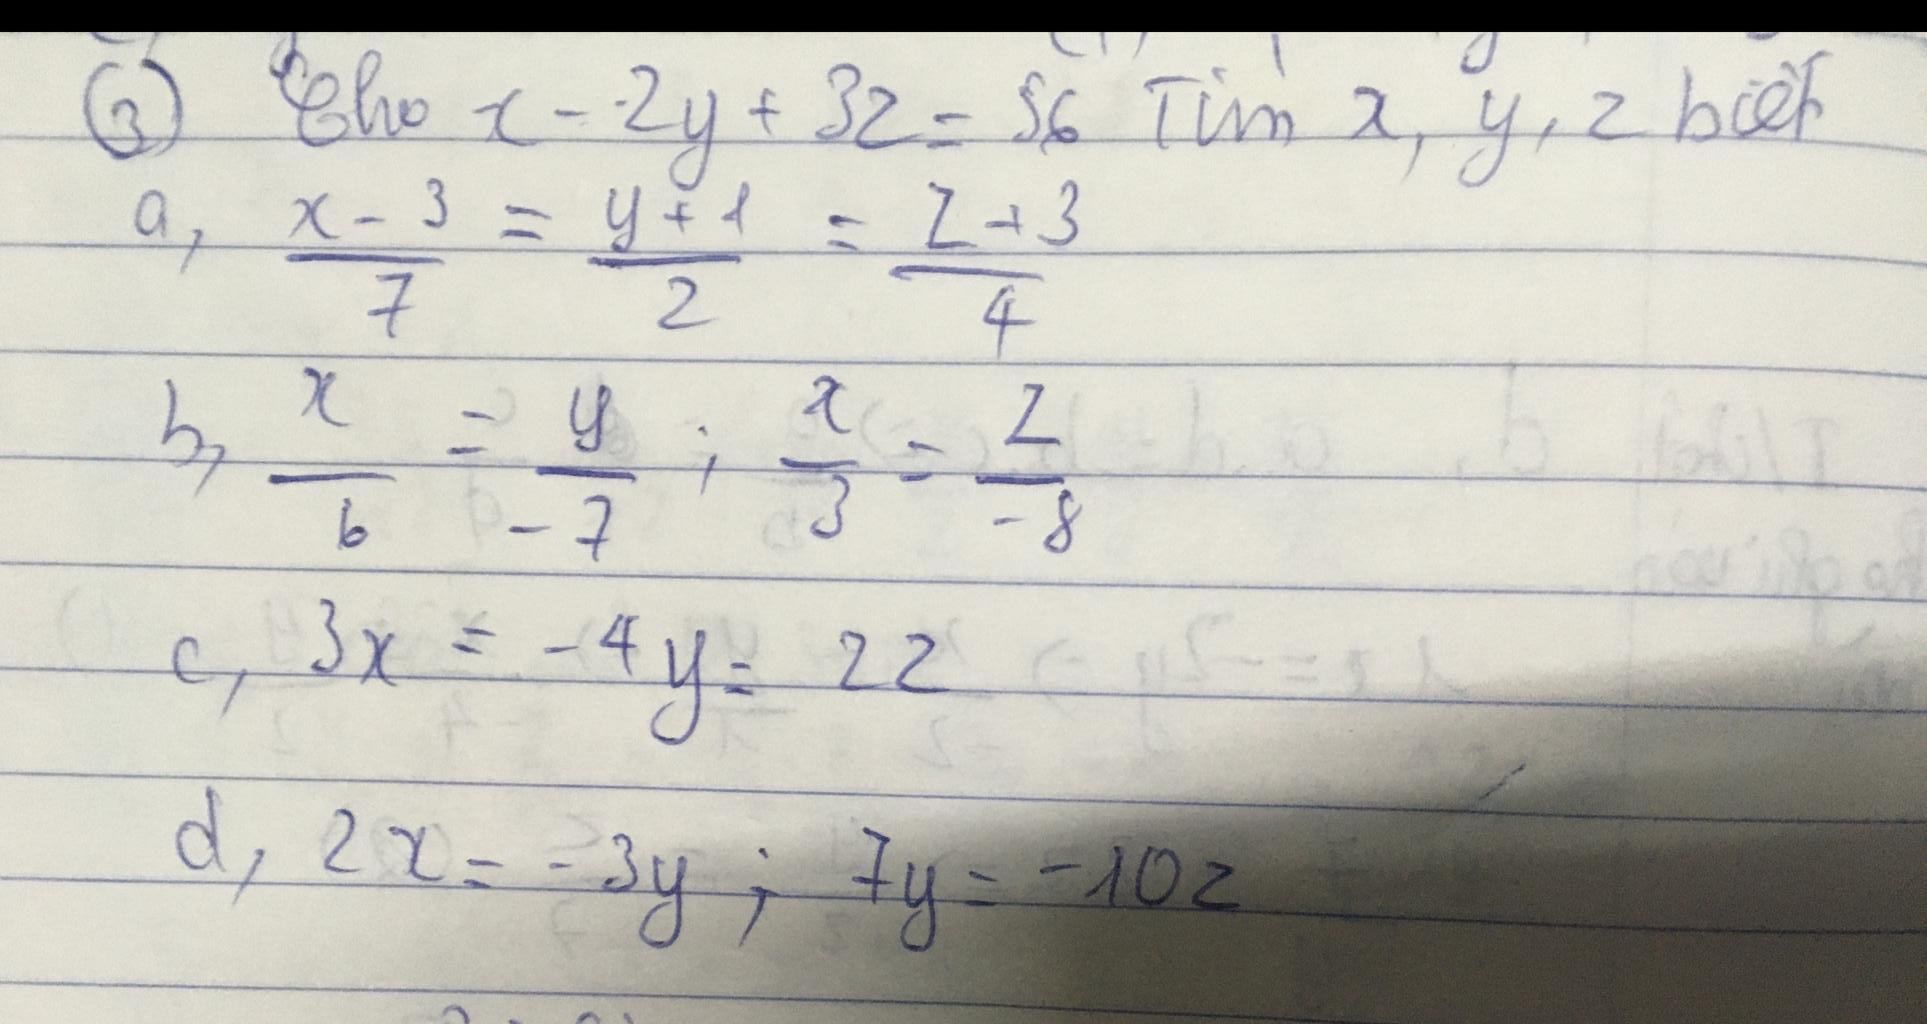 ③ Cho x - 2y + 3z = 56 Tìm x, y, z biết
a, x - 3 / 7 = y + 1 / 2 = z + 3 / 4
b, x / 6 = y / -7 ; x / 3 = z / -8
c, 3x = -4y = 2z
d, 2x = -3y ; 7y = -10z